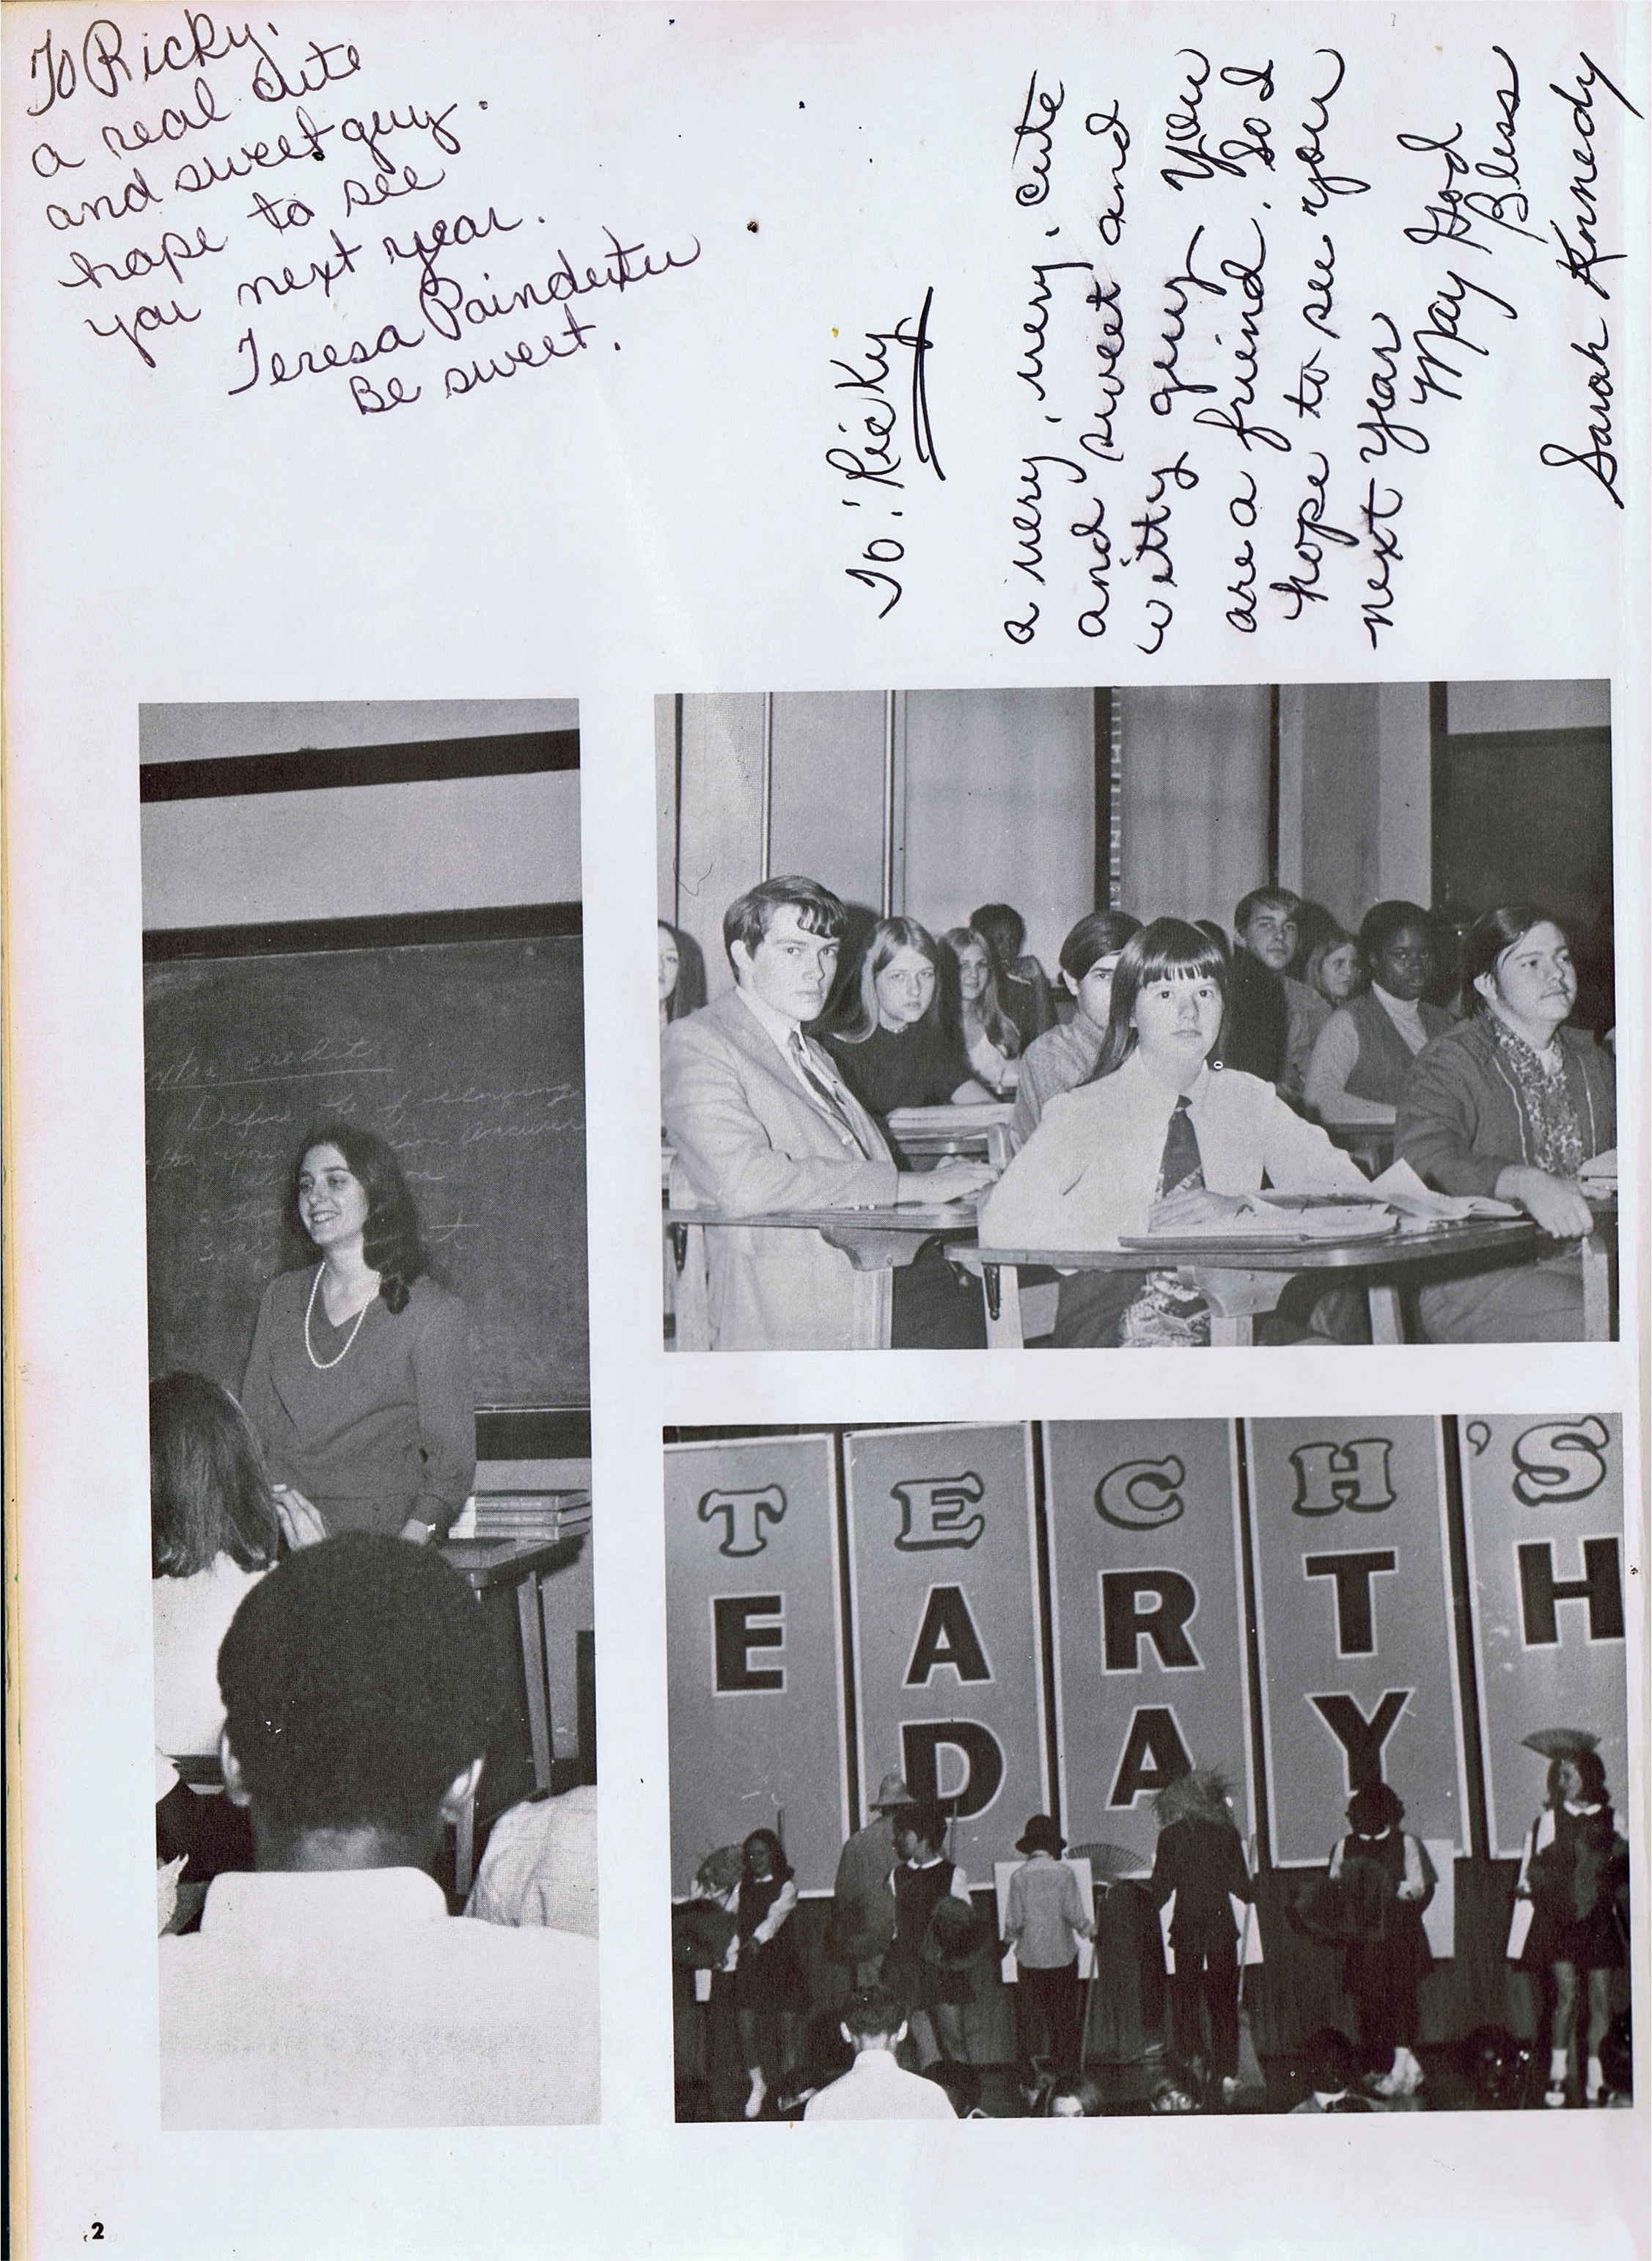 To Ricky.
a real cute
and sweet guy.
hope to see
you next year.
Teresa Poindexter
Be sweet.
To: Ricky
a very, very, cute
and sweet and
witty guy. You
are a friend. So I
hope to see you
next year
May God
Bless
Sarah Kennedy
credit
Define the following
your answers
3.
TECH'S
EARTH
DAY
2